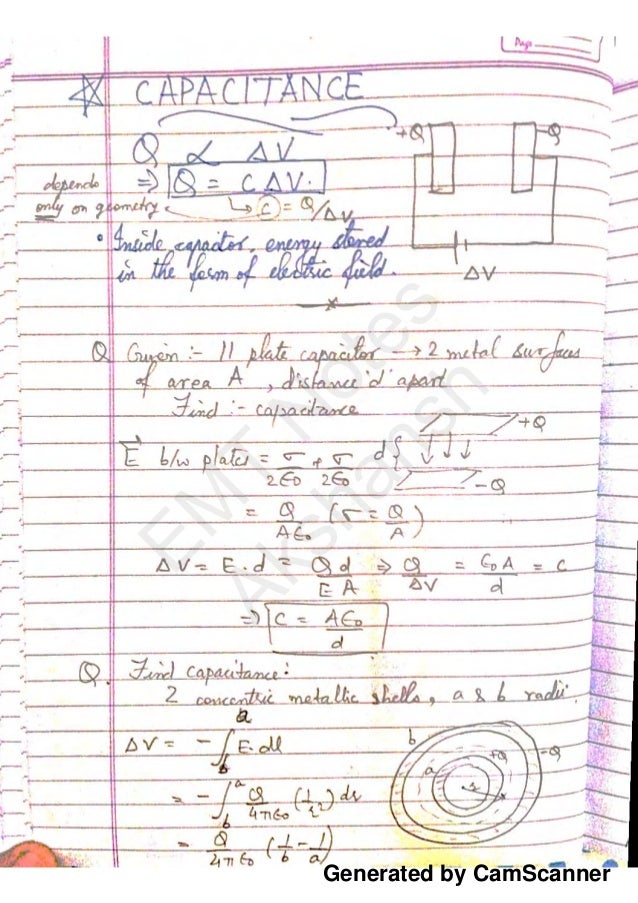 Page
☆ CAPACITANCE
Q ∝ ΔV
⇒ Q = CΔV.
depends only on geometry ← C = Q/ΔV
+Q -Q
ΔV
• Inside capacitor, energy stored
in the form of electric field.
Q Given :- || plate capacitor → 2 metal surfaces
of area A, distance 'd' apart
Find :- capacitance
E⃗ b/w plates = σ/2ε0 + σ/2ε0
d +Q
-Q
= Q/Aε0 (σ = Q/A)
ΔV = E.d = Qd/EA ⇒ Q/ΔV = ε0A/d = C
⇒ C = Aε0/d
Q. Find capacitance:
2 concentric metallic shells, a & b radii.
ΔV = -∫_b^a E.dl
b a +Q -Q r
= -∫_b^a Q/4πε0 (1/r²) dr
= Q/4πε0 (1/b - 1/a)
EMT Notes
Akshansh
Generated by CamScanner